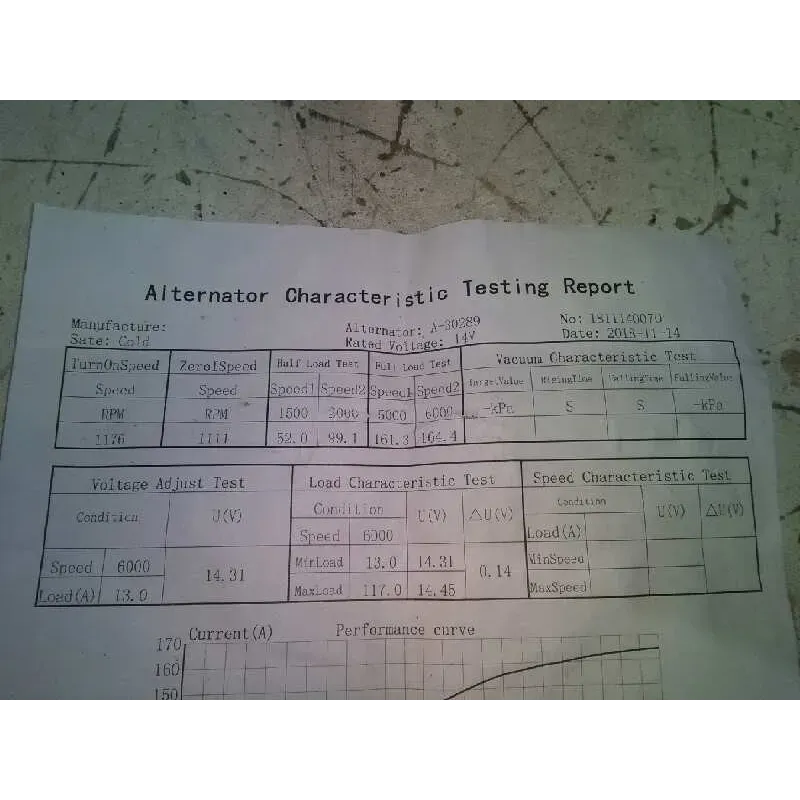 Alternator Characteristic Testing Report
Manufacture: Alternator: A-30289 No: 1811140070
Sate: Cold Rated Voltage: 14V Date: 2018-11-14
TurnOnSpeed ZeroISpeed Half Load Test Full Load Test Vacuum Characteristic Test
Speed Speed Speed1 Speed2 Speed1 Speed2 TargetValue RisingTime FallingTime FallingValue
RPM RPM 1500 3000 5000 6000 -kPa S S -kPa
1176 1111 52.0 99.1 161.3 164.4
Voltage Adjust Test Load Characteristic Test Speed Characteristic Test
Condition U(V) Condition U(V) △U(V) Condition U(V) △U(V)
Speed 6000 Load(A)
Speed 6000 14.31 MinLoad 13.0 14.31 0.14 MinSpeed
Load(A) 13.0 MaxLoad 117.0 14.45 MaxSpeed
Current(A) Performance curve
170
160
150